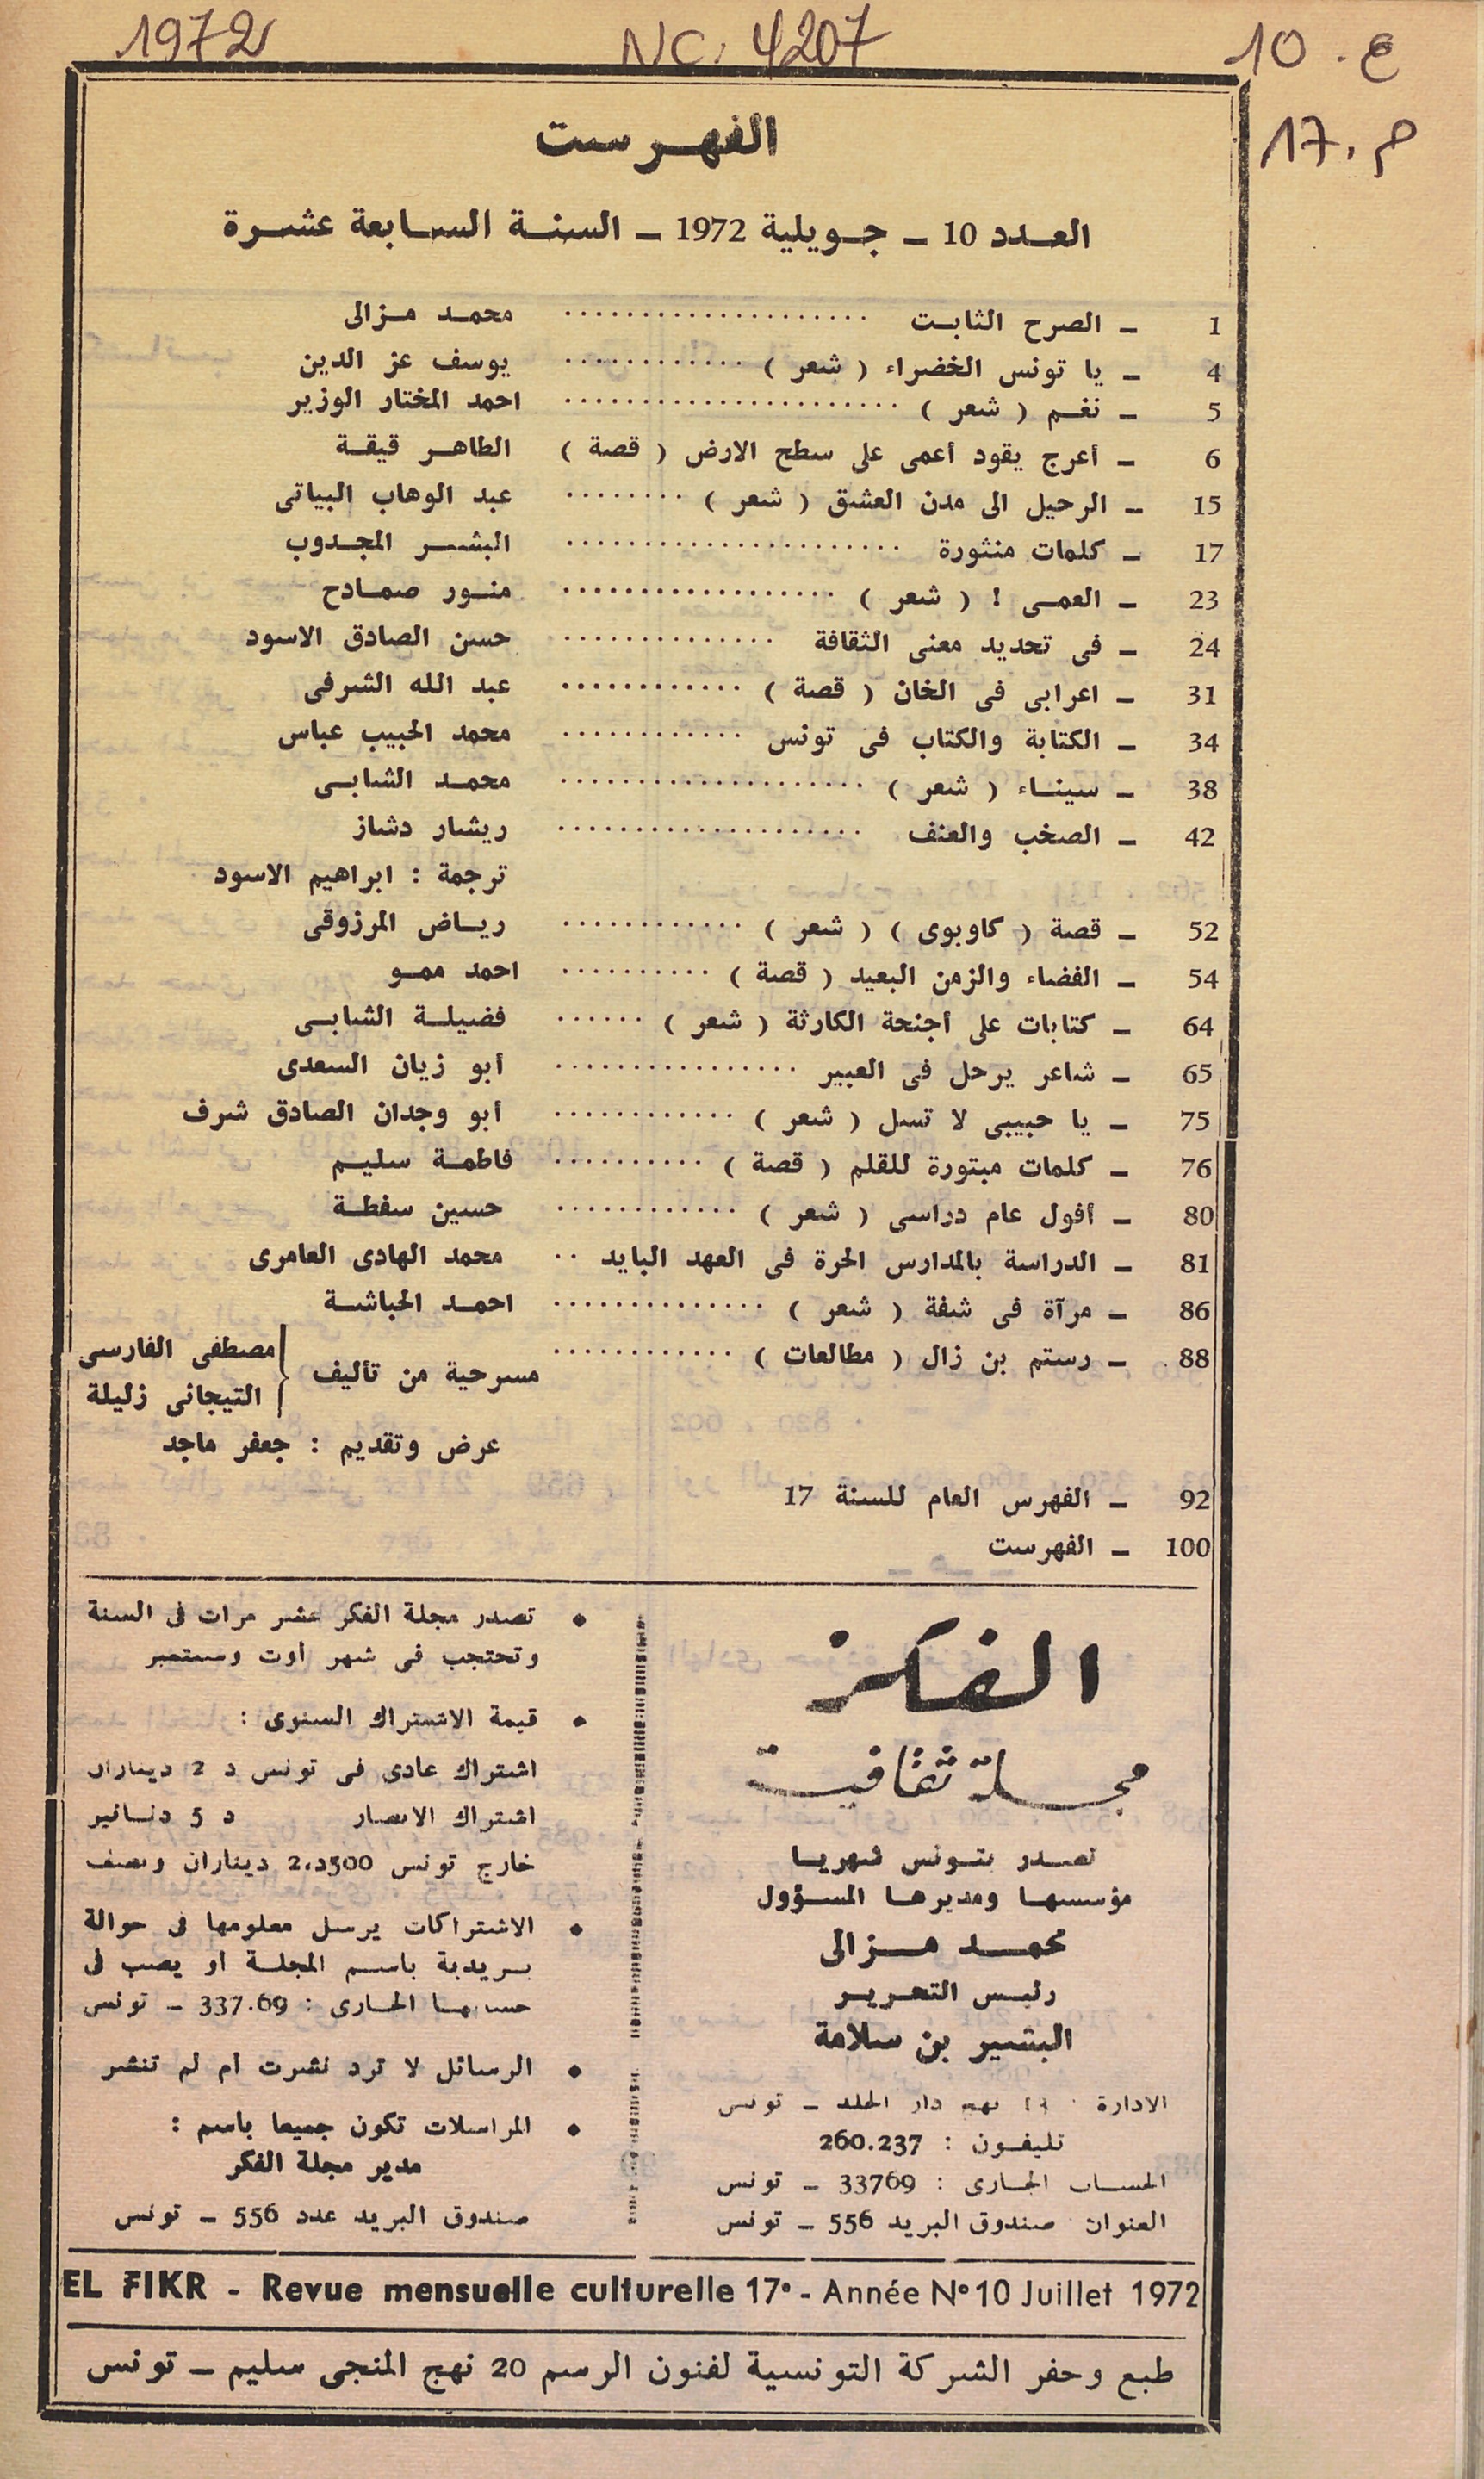 1972
NC. 4207
ع. 10
م. 17
الفهرست
العدد 10 ــ جويلية 1972 ــ السنة السابعة عشرة
1 ــ الصرح الثابت .................... محمد مزالى
4 ــ يا تونس الخضراء ( شعر ) ............ يوسف عز الدين
5 ــ نغم ( شعر ) ...................... احمد المختار الوزير
6 ــ أعرج يقود أعمى على سطح الارض ( قصة ) الطاهر قيقة
15 ــ الرحيل الى مدن العشق ( شعر ) ........ عبد الوهاب البياتى
17 ــ كلمات منثورة ...................... البشر المجدوب
23 ــ العمى ! ( شعر ) .................. منور صمادح
24 ــ فى تحديد معنى الثقافة .............. حسن الصادق الاسود
31 ــ اعرابى فى الخان ( قصة ) ............ عبد الله الشرفى
34 ــ الكتابة والكتاب فى تونس ............ محمد الحبيب عباس
38 ــ سيناء ( شعر ) .................... محمد الشابى
42 ــ الصخب والعنف .................... ريشار دشاز
ترجمة : ابراهيم الاسود
52 ــ قصة ( كاوبوى ) ( شعر ) ............ رياض المرزوقى
54 ــ الفضاء والزمن البعيد ( قصة ) .......... احمد ممو
64 ــ كتابات على أجنحة الكارثة ( شعر ) ...... فضيلة الشابى
65 ــ شاعر يرحل فى العبير ................ أبو زيان السعدى
75 ــ يا حبيبى لا تسل ( شعر ) ............ أبو وجدان الصادق شرف
76 ــ كلمات مبتورة للقلم ( قصة ) .......... فاطمة سليم
80 ــ أفول عام دراسى ( شعر ) ............ حسين سفطة
81 ــ الدراسة بالمدارس الحرة فى العهد البايد .. محمد الهادى العامرى
86 ــ مرآة فى شفة ( شعر ) .............. احمد الحباشة
88 ــ رستم بن زال ( مطالعات ) ............ مسرحية من تأليف
مصطفى الفارسى
التيجانى زليلة
عرض وتقديم : جعفر ماجد
92 ــ الفهرس العام للسنة 17
100 ــ الفهرست
الفكر
مجلة ثقافية
تصدر بتونس شهريا
مؤسسها ومديرها المسؤول
محمد مزالى
رئيس التحرير
البشير بن سلامة
الادارة : 13 نهج دار الجلد ــ تونس
تليفون : 260.237
الحساب الجارى : 33769 ــ تونس
العنوان صندوق البريد 556 ــ تونس
• تصدر مجلة الفكر عشر مرات فى السنة
وتحتجب فى شهر أوت وسبتمبر
• قيمة الاشتراك السنوى :
اشتراك عادى فى تونس د 2 ديناران
اشتراك الانصار د 5 دنانير
خارج تونس 2،د500 ديناران ونصف
• الاشتراكات يرسل معلومها فى حوالة
بريدية باسم المجلة او يصب فى
حسابها الجارى : 337.69 ــ تونس
• الرسائل لا ترد نشرت أم لم تنشر
• المراسلات تكون جميعا باسم :
مدير مجلة الفكر
صندوق البريد عدد 556 ــ تونس
EL FIKR - Revue mensuelle culturelle 17e - Année N° 10 Juillet 1972
طبع وحفر الشركة التونسية لفنون الرسم 20 نهج المنجى سليم ــ تونس